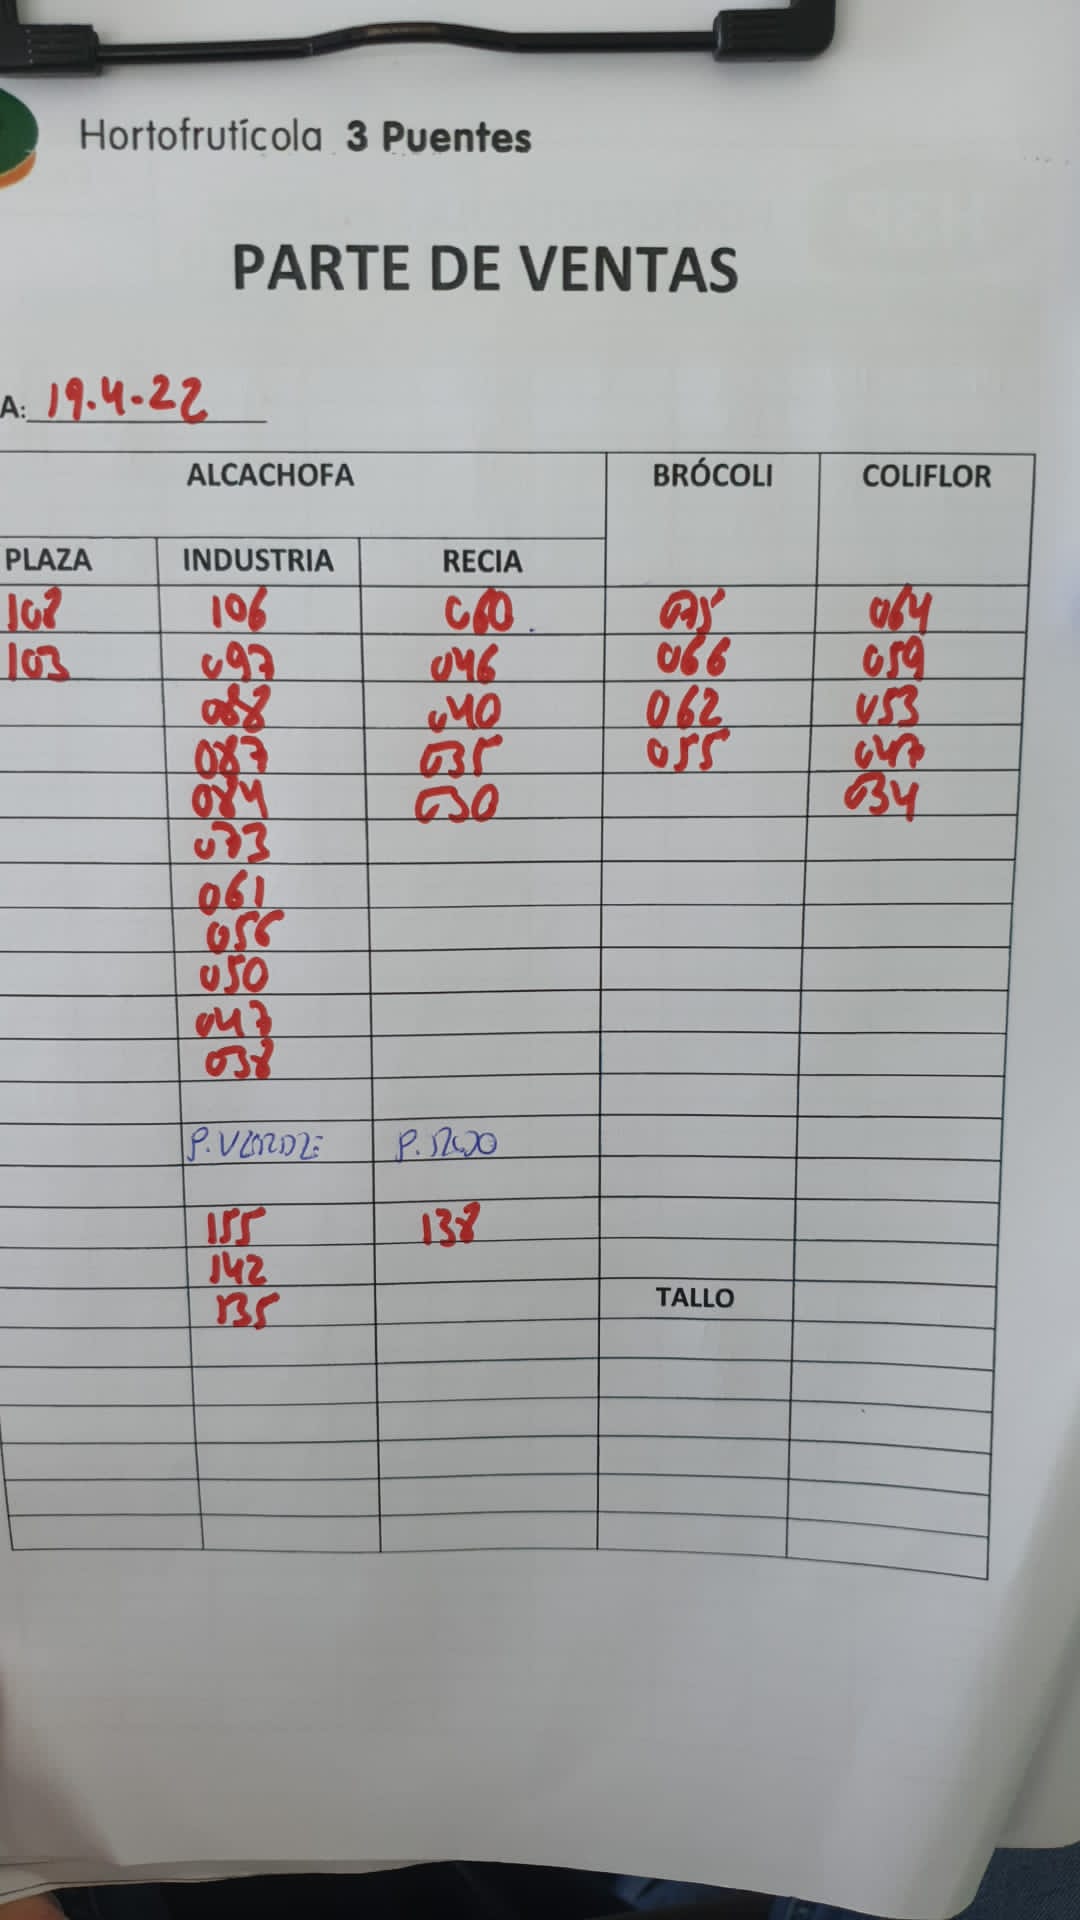 Hortofrutícola 3 Puentes
PARTE DE VENTAS
A: 19.4.22
ALCACHOFA BRÓCOLI COLIFLOR
PLAZA INDUSTRIA RECIA
108 106 060 075 064
103 097 046 066 059
088 040 062 053
087 035 055 047
084 030 034
073
061
056
050
047
038
P. VERDE P. ROJO
155 138
142
135
TALLO